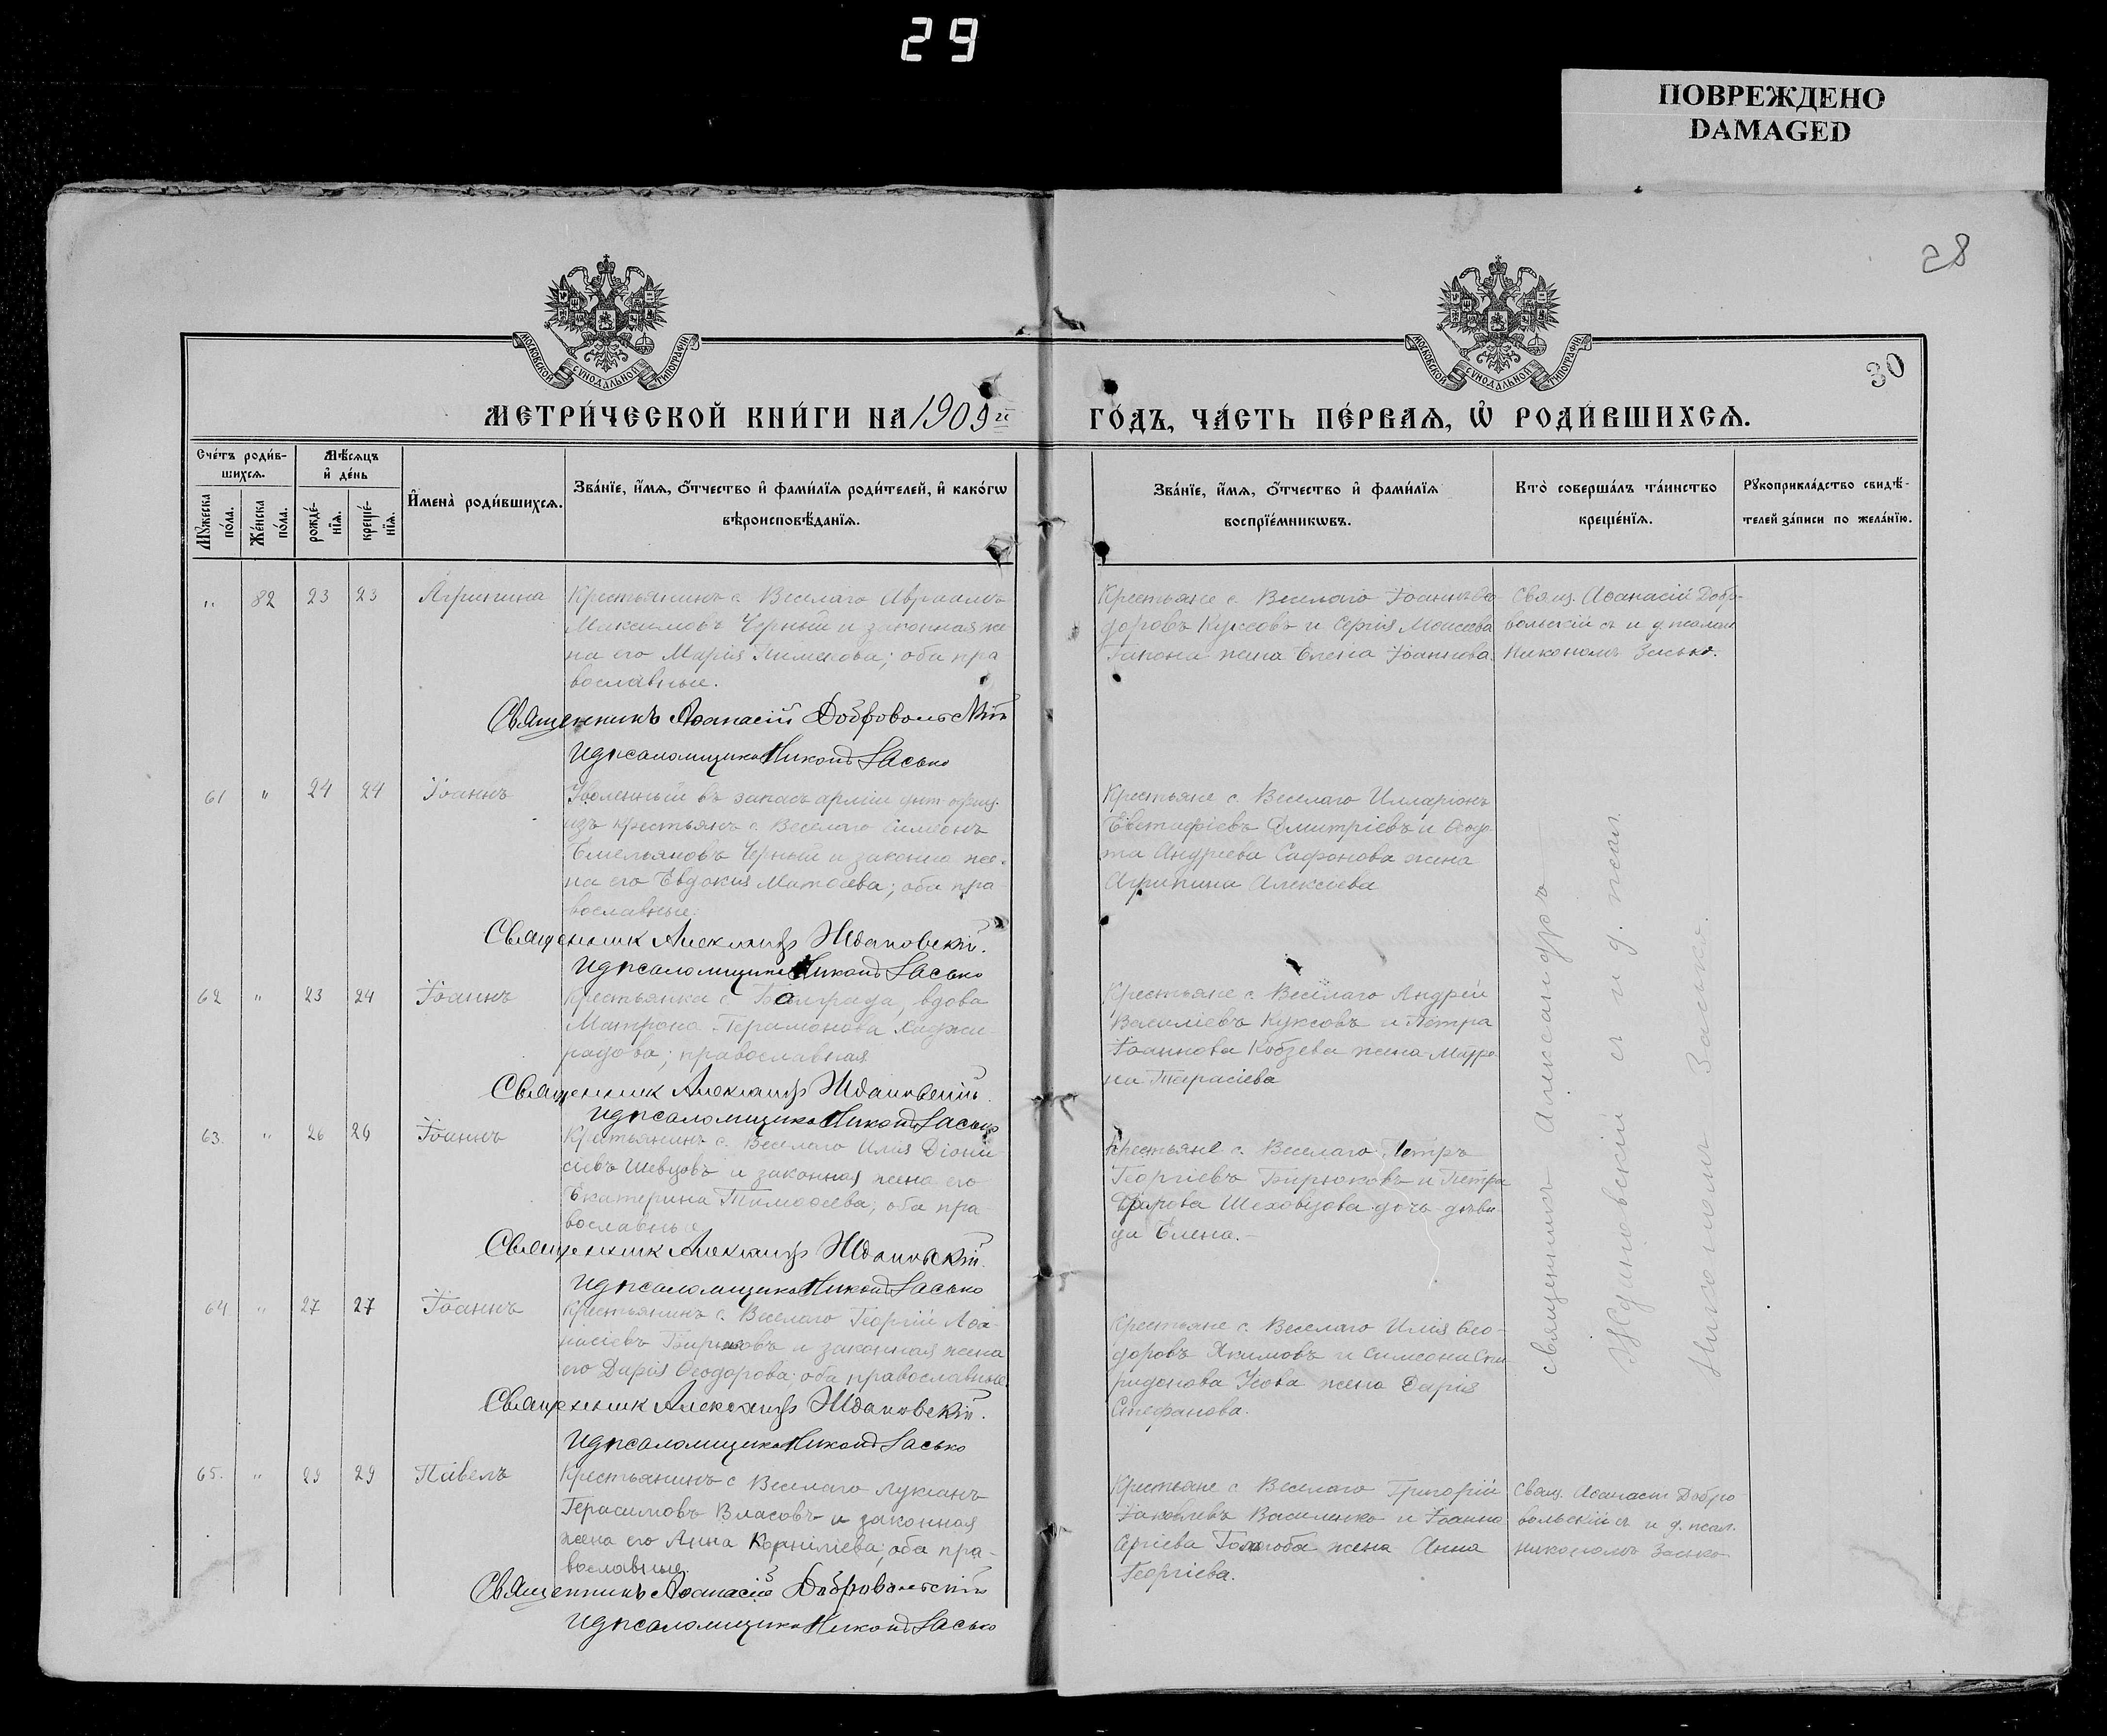 29
ПОВРЕЖДЕНО
DAMAGED
28
30
МОСКОВСКОЙ СѴНОДАЛЬНОЙ ТИПОГРАФІИ
МОСКОВСКОЙ СѴНОДАЛЬНОЙ ТИПОГРАФІИ
МЕТРИ́ЧЕСКОЙ КНИ́ГИ НА 1909 й ГО́ДЪ, ЧА́СТЬ ПЕ́РВАѦ, Ѡ҆ РОДИ́ВШИХСѦ.
Сче́тъ роди́в-
шихсѧ.
Мꙋ́жеска по́ла.
Же́нска по́ла.
Мѣ́сѧцъ
и҆ де́нь
рожде́-
нїѧ.
креще́-
нїѧ.
И҆мена̀ роди́вшихсѧ.
Зва́нїе, и҆́мѧ, ѻ҆́тчество и҆ фами́лїѧ роди́телей, и҆ како́гѡ
вѣроисповѣ́данїѧ.
Зва́нїе, и҆́мѧ, ѻ҆́тчество и҆ фами́лїѧ
воспрїе́мникѡвъ.
Кто̀ соверша́лъ та́инство
креще́нїѧ.
Рꙋкоприкла́дство свидѣ́-
телей за́писи по жела́нїю.
" 82 23 23 Агрипина
Крестьянинъ с. Веселаго Авраамъ
Максимовъ Черный и законная же
на его Марія Пименова; оба пра
вославные.
Священникъ Аѳанасій Добровольскій
И д псаломщика Никонъ Засько
Крестьяне с. Веселаго Іоаннъ Ѳео
доровъ Куксовъ и Сергія Моисеева
Гапона жена Елена Іоаннова.
Свящ. Аѳанасій Добро-
вольскій съ и д псалом
Никономъ Засько.
61 " 24 24 Іоаннъ
Уволенный въ запасъ арміи унт. офиц.
изъ крестьянъ с. Веселаго Симеонъ
Емельяновъ Черный и законна же-
на его Евдокія Матѳеева; оба пра
вославные.
Священник Александр Ждановскій.
И д псаломщика Никонъ Засько
Крестьяне с. Веселаго Илларіонъ
Евстафіевъ Дмитріевъ и Ѳеодо
та Андреева Сафонова жена
Агрипина Алексіева
62 " 23 24 Іоаннъ
Крестьянка с. Болграда, вдова
Матрона
радова; православная
Священник Александр Ждановскій.
И д псаломщика Никонъ Засько
Крестьяне с. Веселаго Андрей
Василіевъ Куксовъ и Петра
Іоаннова Кобзева жена Матро
на Тарасіева
63. " 26 26 Іоаннъ
Крестьянинъ с. Веселаго Илія Діони
сіевъ Шевцовъ и законная жена его
Екатерина Тимоѳеева; оба пра
вославные.
Священник Александр Ждановскій.
И д псаломщика Никонъ Засько
Крестьяне с. Веселаго Петръ
Георгіевъ Бирюковъ и Петра
Шеховцова дочь дѣви
ца Елена.-
64 " 27 27 Іоаннъ
Крестьянинъ с. Веселаго Георгій Аѳа-
насіевъ Бирюковъ и законная жена
его Дарія Ѳеодорова; оба православные.
Священник Александр Ждановскій.
И д псаломщика Никонъ Засько
Крестьяне с. Веселаго Илія Ѳео-
доровъ Якимовъ и Симеона Спи
ридонова Усова жена Дарія
Стефанова.
священникъ Александръ
Ждановскій съ и д. псал.
Никономъ Засько.
65. " 29 29 Павелъ
Крестьянинъ с Веселаго Лукіанъ
Герасимовъ Власовъ и законная
жена его Анна Корниліева; оба пра-
вославные.
Священникъ Аѳанасій Добровольскій
И д псаломщика Никонъ Засько
Крестьяне с. Веселаго Григорій
Іаковлевъ Василенко и Іоанна
Сергіева Голоюба жена Анна
Георгіева.
Свящ. Аѳанасій Добро
вольскій съ и д. псал.
Никономъ Засько